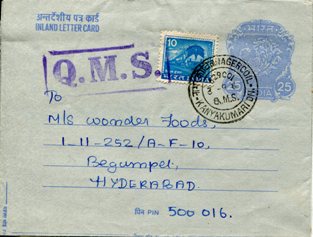 अन्तर्देशीय पत्र कार्ड
INLAND LETTER CARD
Q.M.S.
10
25
NAGERCOIL
R.M.S.
KANYAKUMARI DN.
To
M/s wonder Foods,
1-11-252/A-F-10,
Begumpet,
HYDERABAD.
पिन PIN 500 016.